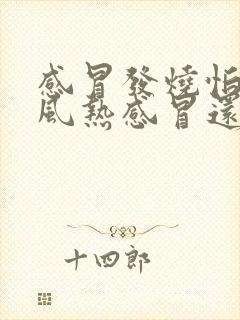 感冒發燒怕
風熱感冒還
十四郎